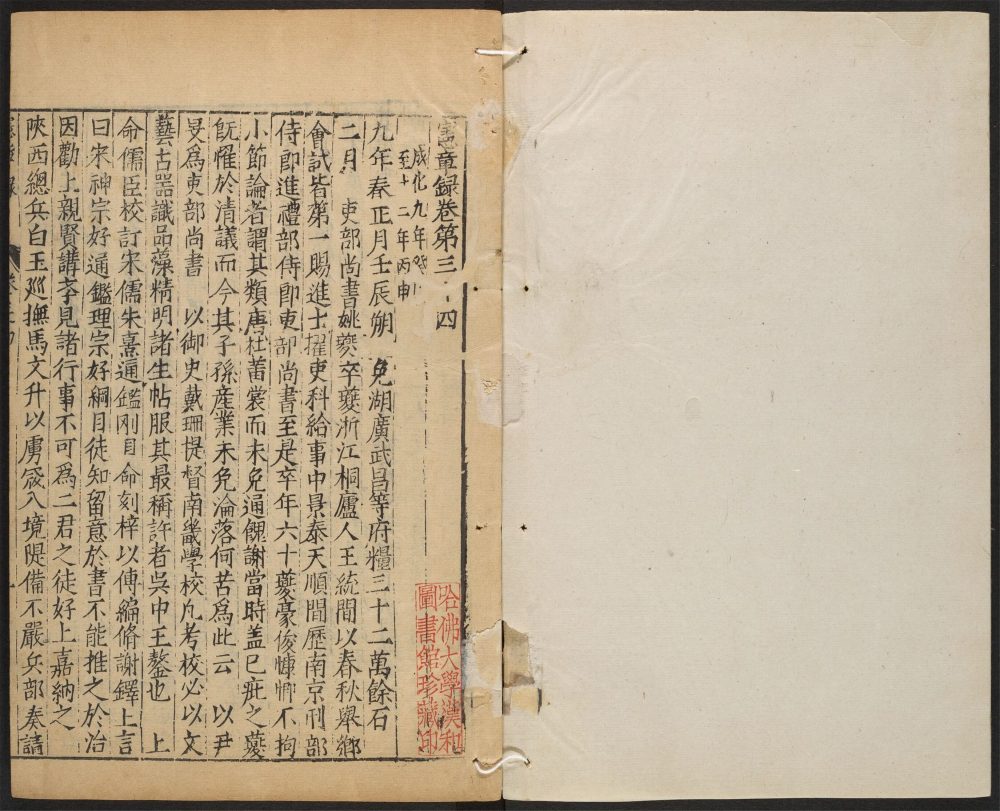 憲章録卷第三十四
成化九年癸巳
至十二年丙申
九年春正月壬辰朔 免湖廣武昌等府糧三十二萬餘石
二月 吏部尚書姚夔卒夔浙江桐廬人王統間以春秋舉鄉
會試皆第一賜進士擢吏科給事中景泰天順間歷南京刑部
侍郎進禮部侍郎吏部尚書至是卒年六十夔豪俊慷慨不拘
小節論者謂其類唐杜黃裳而未免通餽謝當時盖已疵之夔
旣惟於清議而今其子孫産業未免淪落何苦爲此云 以尹
旻爲吏部尚書 以御史戴珊提督南畿學校凡考校必以文
藝古器識品藻精明諸生帖服其最稱許者吳中王鏊也 上
命儒臣校訂宋儒朱熹通鑑刚目命刻梓以傳編脩謝鐸上言
曰宋神宗好通鑑理宗好綱目徒知留意於書不能推之於治
因勸上親賢講孝見諸行事不可爲二君之徒好上嘉納之
陝西總兵白玉廵撫馬文升以虜寇入境隄備不嚴兵部奏請
哈佛大學漢和
圖書館珍藏印